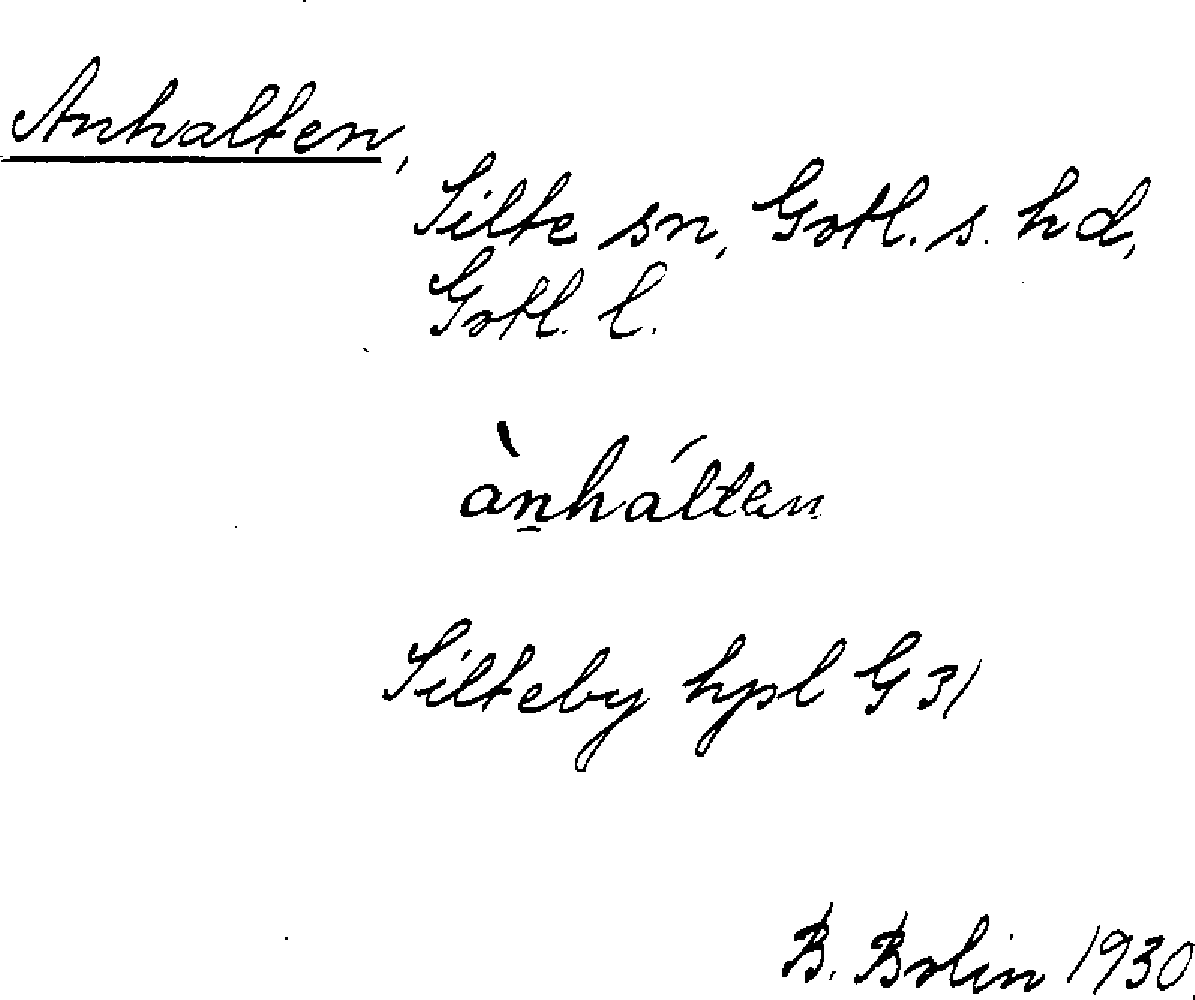 Anhalten,
Silte sn, Gotl. s. hd,
Gotl. l.
àn̲hálten
Silteby hpl G 31
B. Bolin 1930